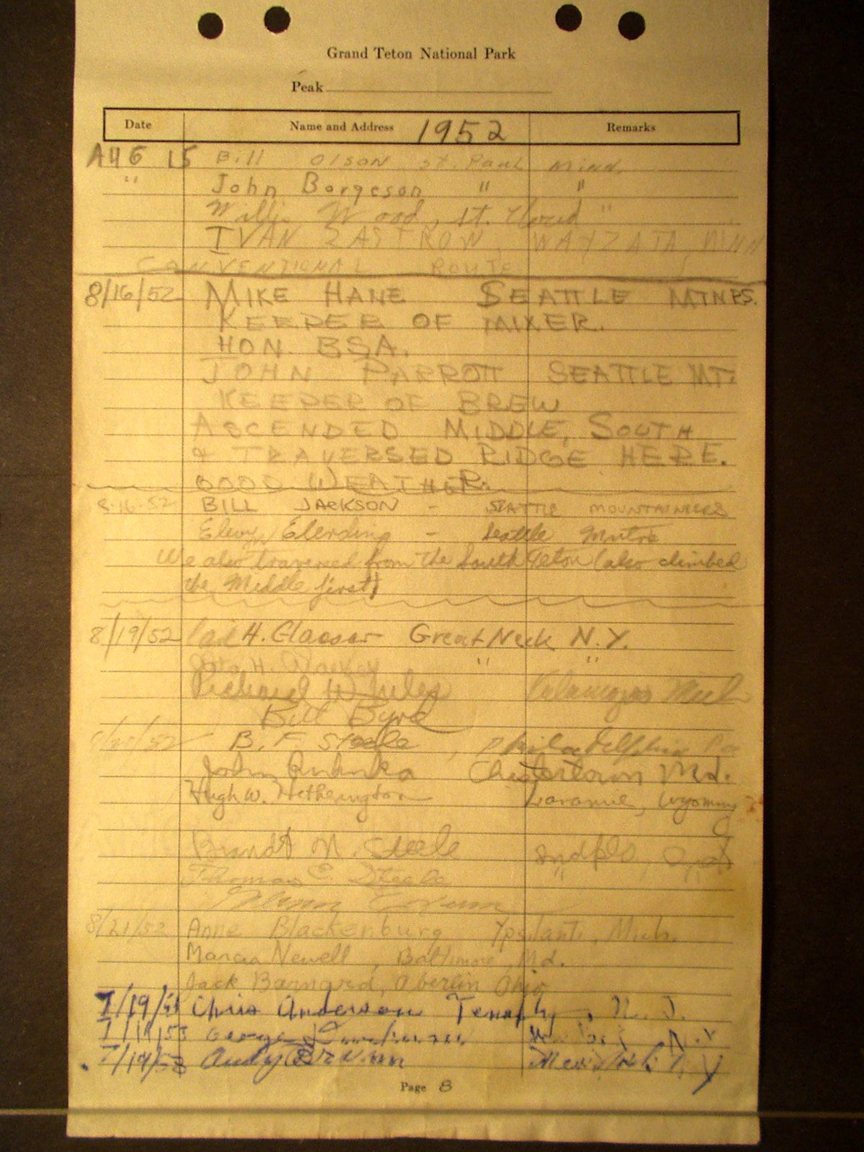 Grand Teton National Park
Peak
Date Name and Address 1952 Remarks
AUG 15 Bill Olson St. Paul Minn.
" John Borgeson " "
Willis Wood, St. Cloud "
IVAN ZASTROW, WAYZATA, MINN
CONVENTIONAL ROUTE
8/16/52 MIKE HANE SEATTLE MTNRS.
KEEPER OF MIXER.
HON. BSA.
JOHN PARROTT SEATTLE MT.
KEEPER OF BREW
ASCENDED MIDDLE, SOUTH
& TRAVERSED RIDGE HERE.
GOOD WEATHER.
8-16-52 BILL JACKSON - SEATTLE MOUNTAINEERS
- Seattle
We also traversed from the South Teton (also climbed
the Middle first)
8/19/52 H. Glaeser Great Neck N.Y.
" "
Richard W. Mich
Bill Byrd
B. F. Steele, Philadelphia Pa
John Chestertown Md.
Hugh W. Hetherington Laramie, Wyoming
Brandt N. Steele
Thomas E. Steele " "
8/21/52 Anne Blackenburg Ypsilanti, Mich.
Marcia Newell, Baltimore, Md.
Jack Barngrd, Oberlin Ohio
7/19/53 Chris Anderson Tenafly, N. J.
7/19/53 George New York, N.Y
7/19/53 Andy Brown New York N Y
Page 8